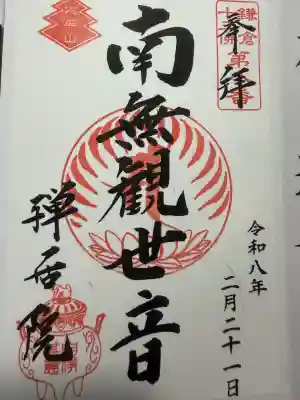 奉拝
鎌倉
十佛
第
番
南無観世音
令和八年
二月二十一日
禅居院